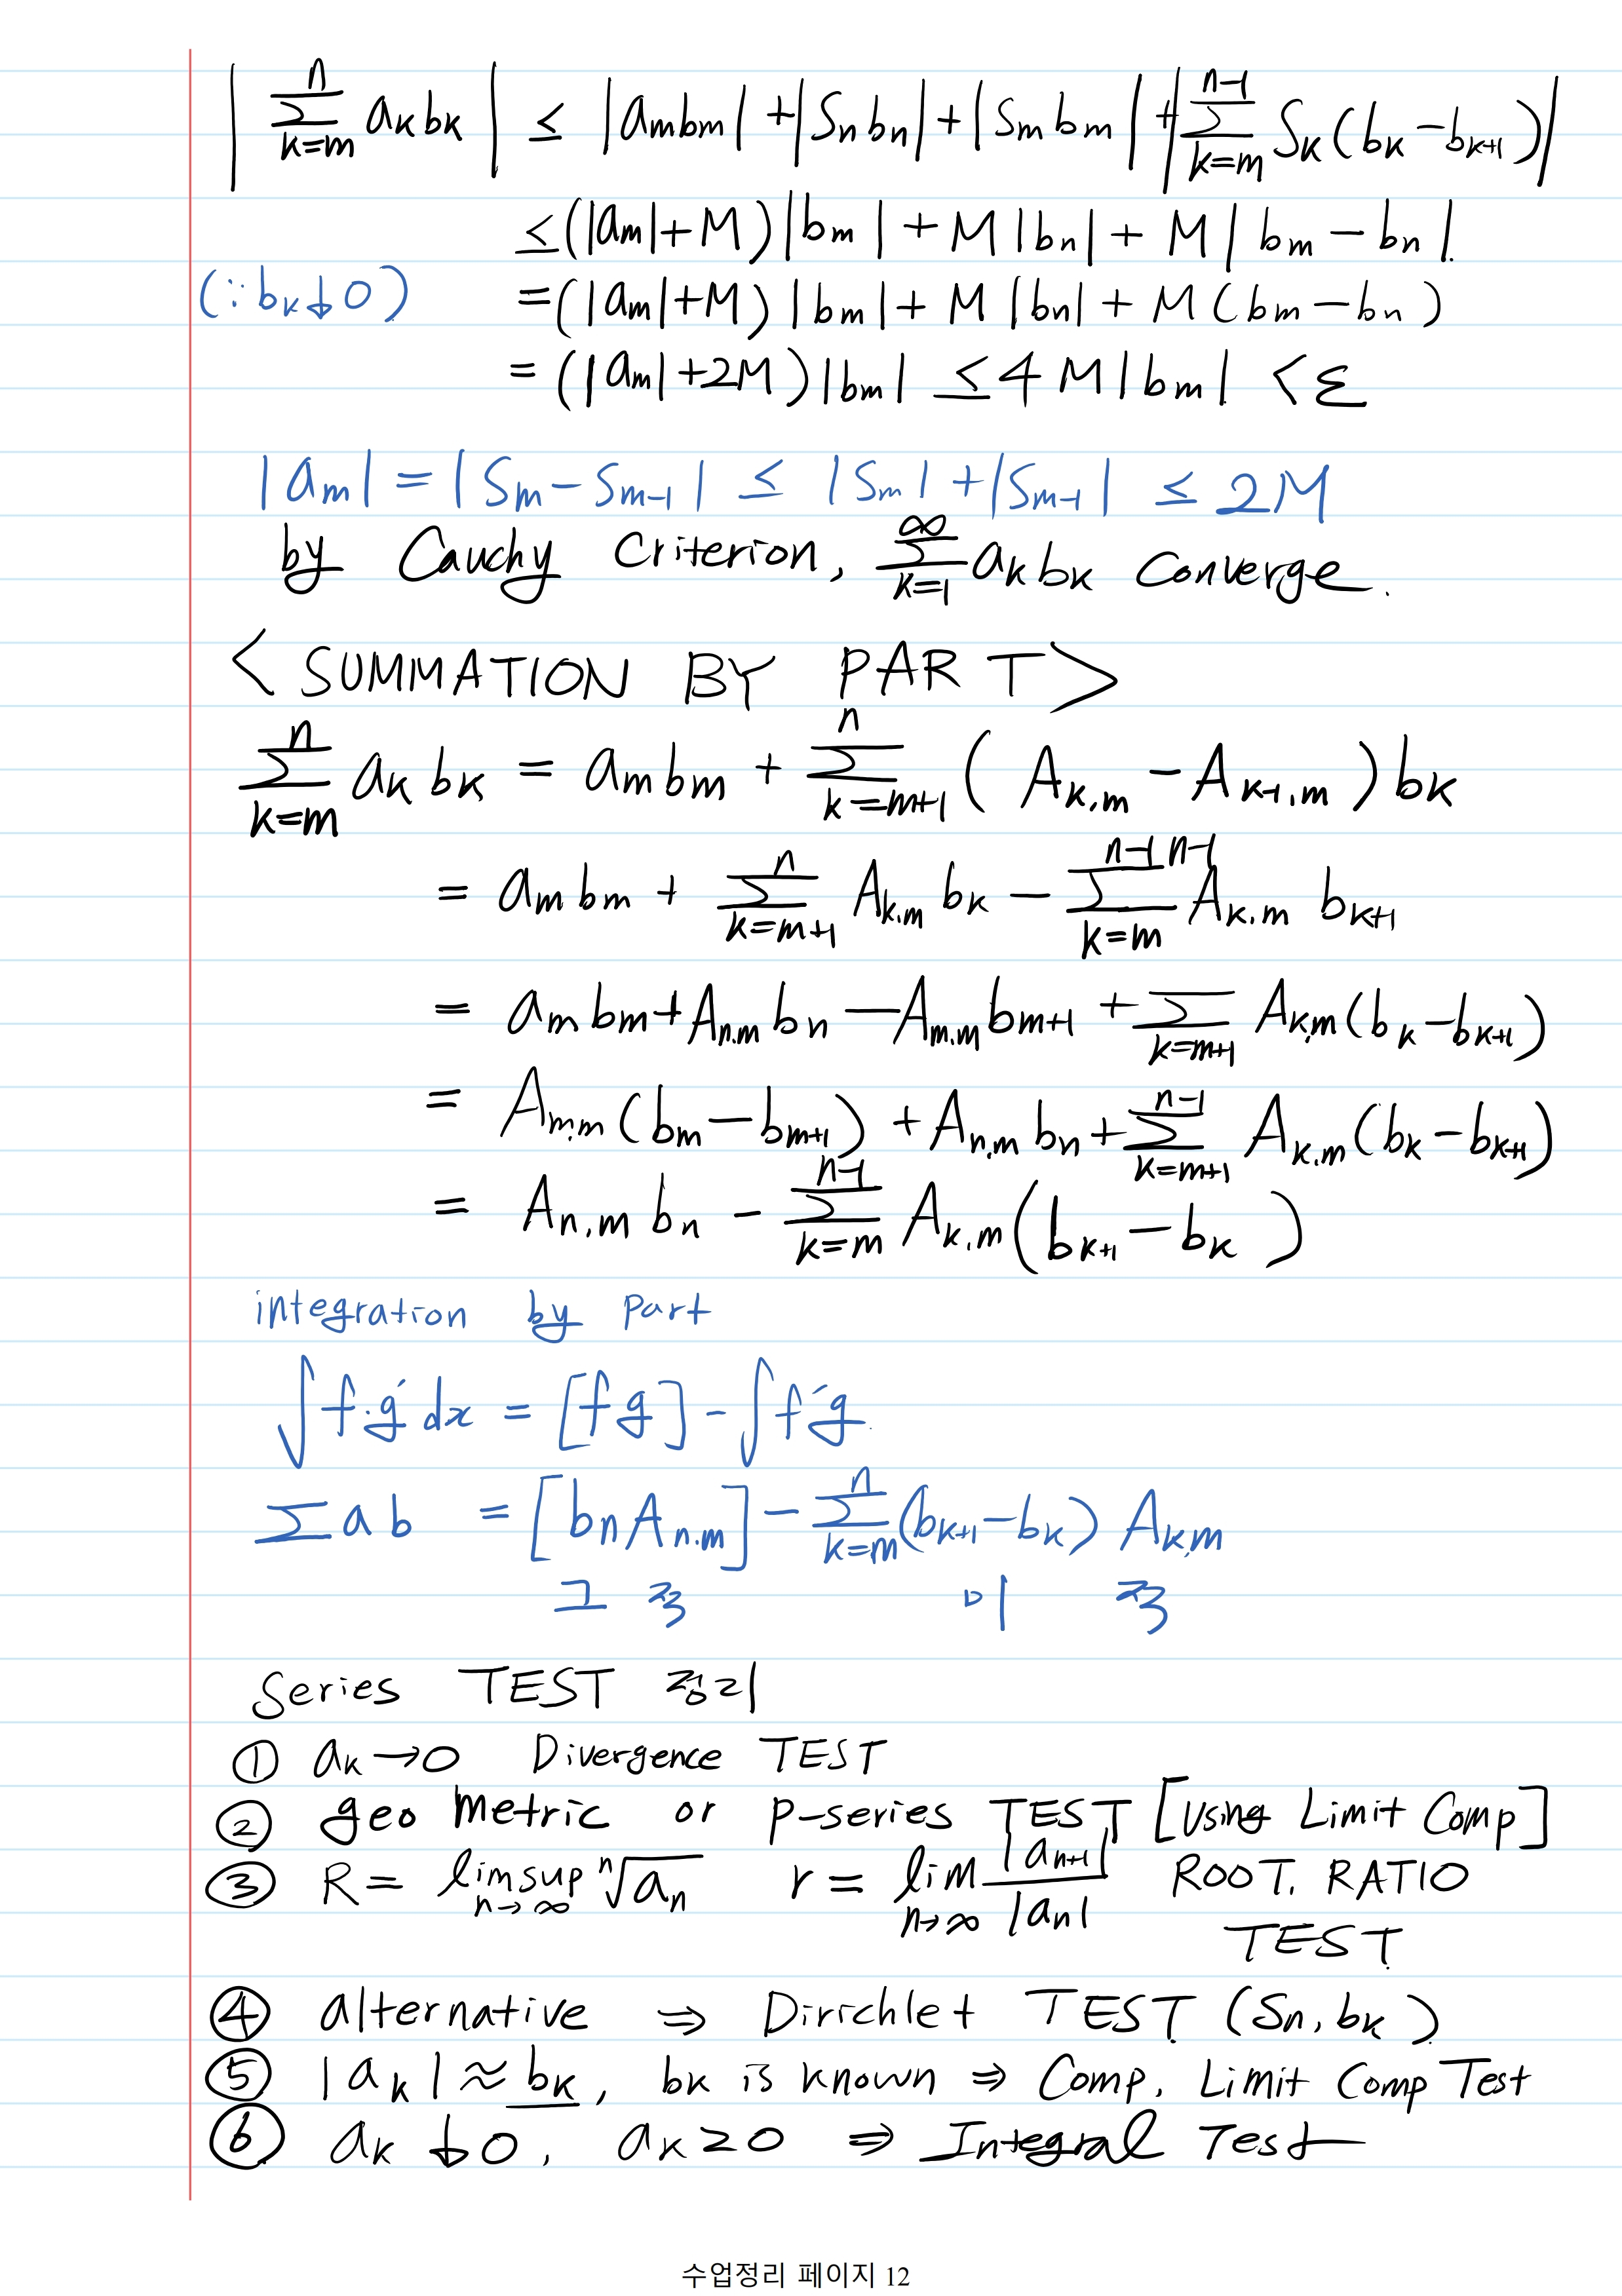 |∑_{k=m}^{n} a_k b_k| ≤ |a_m b_m| + |S_n b_n| + |S_m b_m| + |∑_{k=m}^{n-1} S_k (b_k - b_{k+1})|
≤ (|a_m| + M)|b_m| + M|b_n| + M|b_m - b_n|.
(∵ b_k ↓ 0) = (|a_m| + M)|b_m| + M|b_n| + M(b_m - b_n)
= (|a_m| + 2M)|b_m| ≤ 4M|b_m| < ε
|a_m| = |S_m - S_{m-1}| ≤ |S_m| + |S_{m-1}| ≤ 2M
by Cauchy Criterion, ∑_{k=1}^{∞} a_k b_k Converge.
<SUMMATION BY PART>
∑_{k=m}^{n} a_k b_k = a_m b_m + ∑_{k=m+1}^{n} (A_{k,m} - A_{k-1,m}) b_k
= a_m b_m + ∑_{k=m+1}^{n} A_{k,m} b_k - ∑_{k=m}^{n-1 n-1} A_{k,m} b_{k+1}
= a_m b_m + A_{n,m} b_n - A_{m,m} b_{m+1} + ∑_{k=m+1} A_{k,m} (b_k - b_{k+1})
= A_{m,m} (b_m - b_{m+1}) + A_{n,m} b_n + ∑_{k=m+1}^{n-1} A_{k,m} (b_k - b_{k+1})
= A_{n,m} b_n - ∑_{k=m}^{n-1} A_{k,m} (b_{k+1} - b_k)
integration by part
∫ f·g' dx = [fg] - ∫ f'g.
∑ a b = [b_n A_{n,m}] - ∑_{k=m}^{n} (b_{k+1} - b_k) A_{k,m}
그 적 미 적
Series TEST 정리
① a_k → 0 Divergence TEST
② geometric or p-series TEST [Using Limit Comp]
③ R = limsup_{n→∞} ⁿ√a_n r = lim_{n→∞} |a_{n+1}| / |a_n| ROOT. RATIO
TEST
④ alternative ⇒ Dirichlet TEST (S_n, b_k)
⑤ |a_k| ≈ b_k, b_k is known ⇒ Comp. Limit Comp Test
⑥ a_k ↓ 0, a_k ≥ 0 ⇒ Integral Test
수업정리 페이지 12